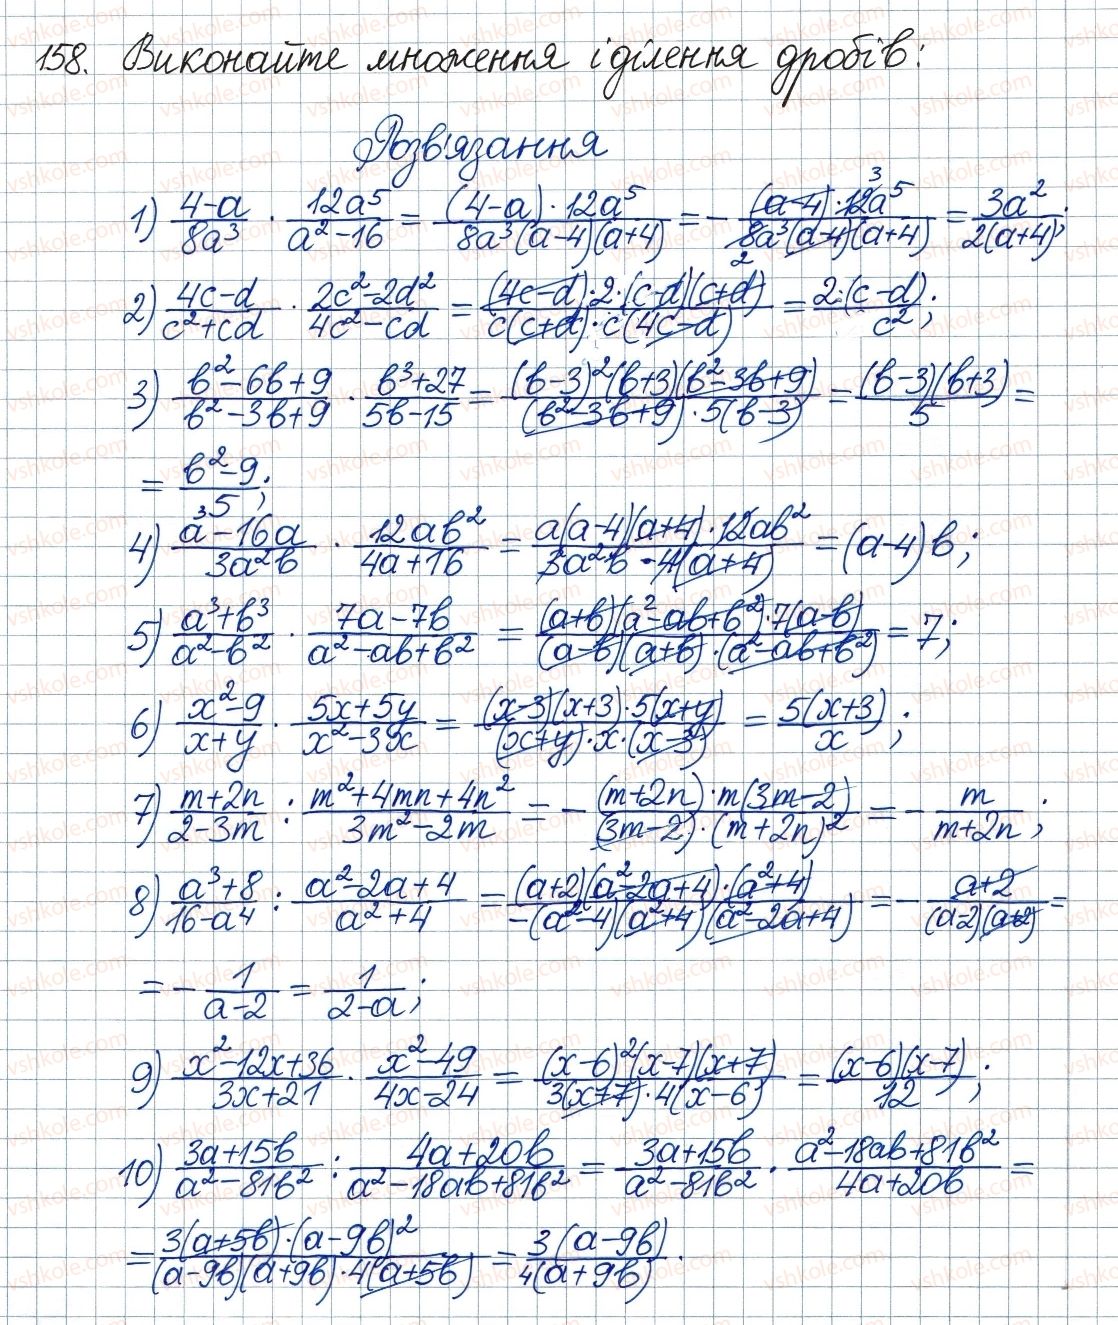 158. Виконайте множення і ділення дробів:
Розв'язання
1) (4-a)/(8a³) · (12a⁵)/(a²-16) = ((4-a)·12a⁵)/(8a³(a-4)(a+4)) = -((a-4)·12a⁵)/(8a³(a-4)(a+4)) = (3a²)/(2(a+4));
2) (4c-d)/(c²+cd) · (2c²-2d²)/(4c²-cd) = ((4c-d)·2·(c-d)(c+d))/(c(c+d)·c(4c-d)) = (2·(c-d))/(c²);
3) (b²-6b+9)/(b²-3b+9) · (b³+27)/(5b-15) = ((b-3)²(b+3)(b²-3b+9))/((b²-3b+9)·5(b-3)) = ((b-3)(b+3))/5 =
= (b²-9)/5;
4) (a³-16a)/(3a²b) · (12ab²)/(4a+16) = (a(a-4)(a+4)·12ab²)/(3a²b·4(a+4)) = (a-4)b;
5) (a³+b³)/(a²-b²) · (7a-7b)/(a²-ab+b²) = ((a+b)(a²-ab+b²)·7(a-b))/((a-b)(a+b)·(a²-ab+b²)) = 7;
6) (x²-9)/(x+y) · (5x+5y)/(x²-3x) = ((x-3)(x+3)·5(x+y))/((x+y)·x·(x-3)) = (5(x+3))/x;
7) (m+2n)/(2-3m) : (m²+4mn+4n²)/(3m²-2m) = -((m+2n)·m(3m-2))/((3m-2)·(m+2n)²) = -m/(m+2n);
8) (a³+8)/(16-a⁴) : (a²-2a+4)/(a²+4) = ((a+2)(a²-2a+4)·(a²+4))/(-(a²-4)(a²+4)(a²-2a+4)) = -(a+2)/((a-2)(a+2)) =
= -1/(a-2) = 1/(2-a);
9) (x²-12x+36)/(3x+21) · (x²-49)/(4x-24) = ((x-6)²(x-7)(x+7))/(3(x+7)·4(x-6)) = ((x-6)(x-7))/12;
10) (3a+15b)/(a²-81b²) : (4a+20b)/(a²-18ab+81b²) = (3a+15b)/(a²-81b²) · (a²-18ab+81b²)/(4a+20b) =
= (3(a+5b)·(a-9b)²)/((a-9b)(a+9b)·4(a+5b)) = (3(a-9b))/(4(a+9b)).